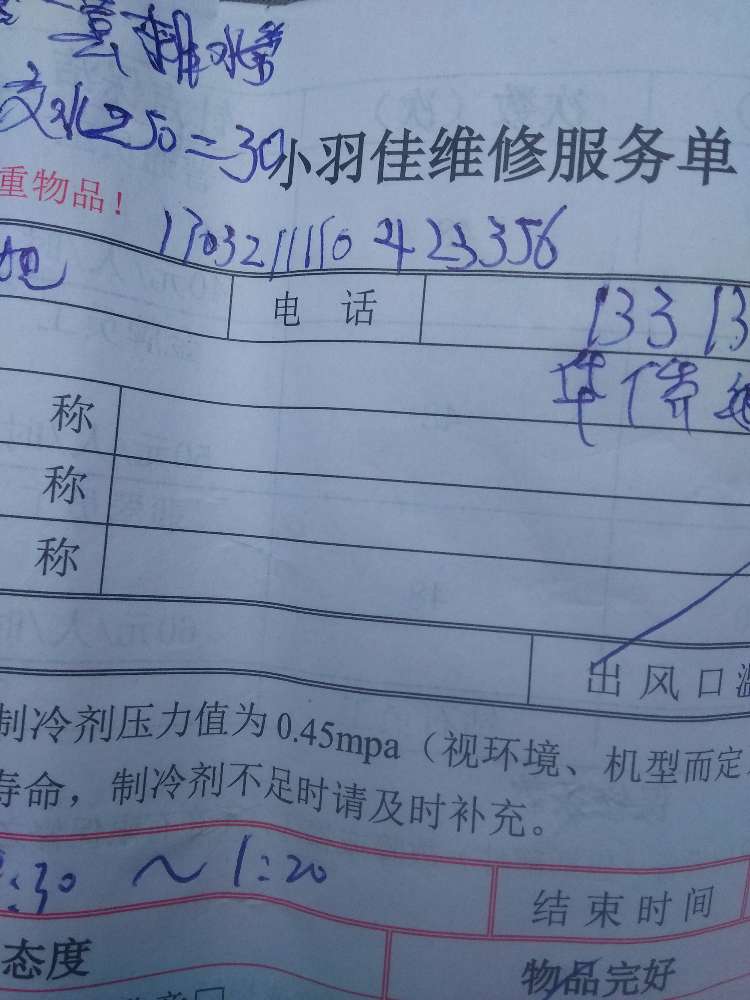 套排水管
交水250=30小羽佳维修服务单
重物品!
170321110423356
电话 13313
华侨
称
称
称
出风口温
制冷剂压力值为0.45mpa（视环境、机型而定
寿命，制冷剂不足时请及时补充。
:30 ～1:20 结束时间
态度 物品完好